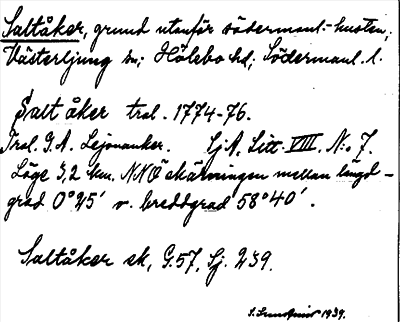 Saltåker, grund utanför södermanl.-kusten;
Västerljung sn; Hölebo hd; Södermanl. l.
Salt åker trol. 1774-76.
Trol. G.A. Lejonanker. Sj A. Litt. VIII. No 7.
Läge 3,2 km. NNÖ skärningen mellan längd-
grad 0°25' v. breddgrad 58°40'.
Saltåker sk, G.57, Sj. 239.
1939.